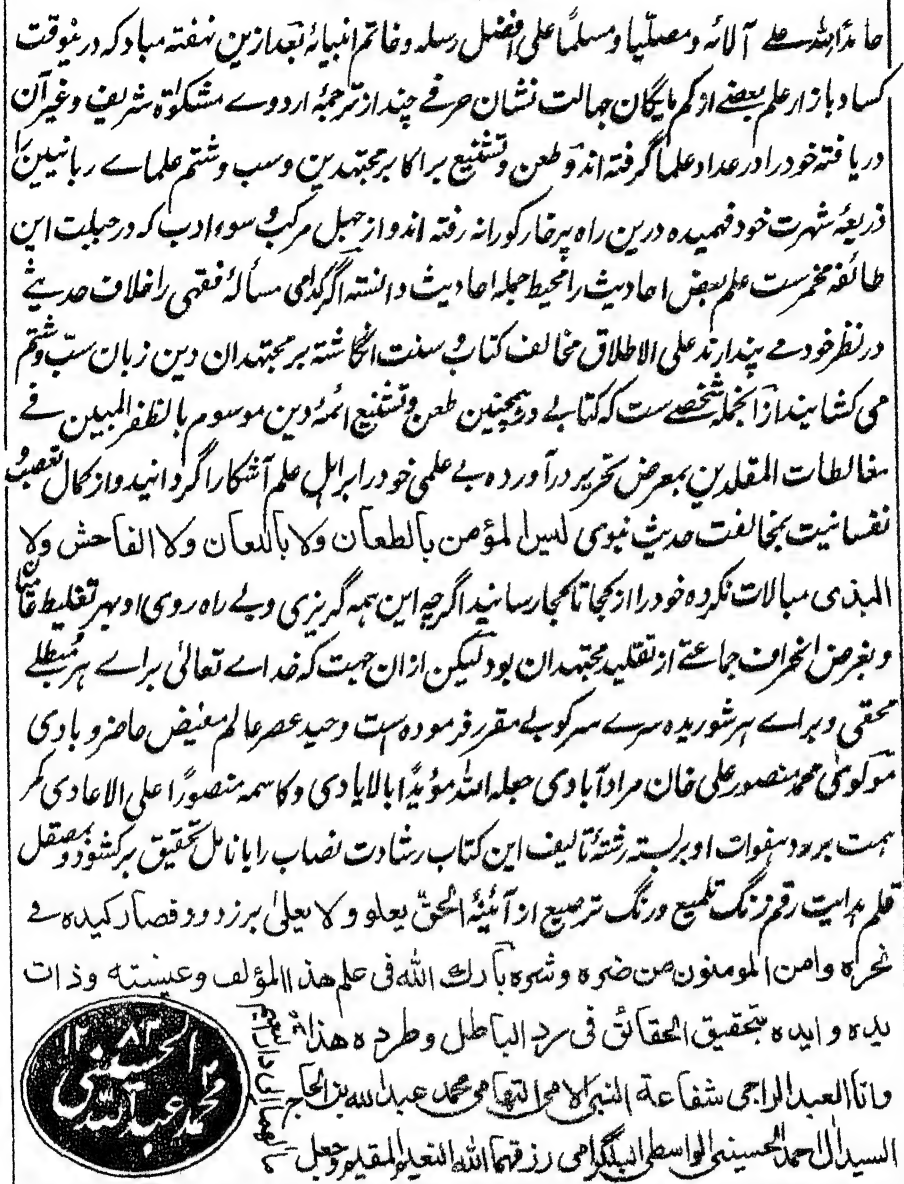 حامدا لله على آلائه ومصلّيا ومسلمًا على افضل رسله وخاتم انبيائه بعد ازین نهفته مباد که درینوقت
کساد بازار علم بعضے از کم مایگان جہالت نشان حرفے چند از ترجمۂ اردوے مشکوٰة شریف وغیر آن
دریافته خود را در عداد علما گرفته اند و طعن وتشنیع بر اکابر مجتہدین وسب وشتم علماے ربانیین را
ذریعۂ شہرت خود فہمیده درین راه پرخار کورانه رفته اند و از جہل مرکب وسوء ادب که در جبلت این
طائفه مخمرست علم بعض احادیث را محیط جمله احادیث دانسته اگر کدامی مسألۂ فقہی را خلاف حدیثے
در نظر خود مے پندارند علی الاطلاق مخالف کتاب و سنت انگاشته بر مجتہدان دین زبان سبّ وشتم
می کشایند از انجمله شخصے ست که کتابے در ہمچنین طعن وتشنیع ائمۂ دین موسوم بالظفر المبین فے
مغالطات المقلدین بمعرض تحریر در آورده بے علمی خود را بر اہل علم آشکارا گردانید و از کمال تعصب و
نفسانیت بمخالفت حدیث نبوی لیس المؤمن بالطعان ولا باللعان ولا الفاحش ولا
البذی مبالات نکرده خود را از کجا تا کجا رسانید اگرچه این ہمه گریزی وبے راه روی او بہر تغلیط عامیان
وبغرض انحراف جماعتے از تقلید مجتہدان بود لیکن ازان جہت که خداے تعالیٰ براے ہر مُبطلے
محقی وبراے ہر شوریده سرے سرکوبے مقرر فرموده است وحید عصر عالم مفیض حاضر و بادی
مولوی محمد منصور علی خان مرادآبادی جعله الله مؤیدًا بالایادی وکاسمه منصورًا علی الاعادی کمر
ہمت برد ہفوات او بربسته رشتۂ تالیف این کتاب رشادت نصاب را بانامل تحقیق برکشود و بمصقل
قلم ہدایت رقم زنگ تلمیع ورنگ ترصیع از آئینۂ الحق یعلو ولا یعلیٰ برزدود فصار کیده فے
نحره وامن المومنون من ضره وشره بارك الله فی علم هذا المؤلف وعیشته وذات
یده وایده بتحقیق الحقائق فی رد الباطل وطرده هذا
وانا العبد الراجی شفاعة النبی الامی التهامی محمد عبد الله بن الحاج
السید آل احمد الحسینی الواسطی البلگرامی رزقهما الله النعیم المقیم وجعل
مآلهما الی دار النعیم
الحسینی ١٢٨٣
محمد عبد الله